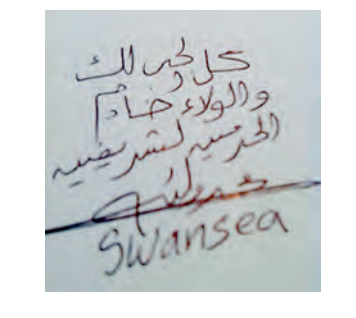 كل الحب لك
والولاء خادم
الحرمين الشريفين
Swansea